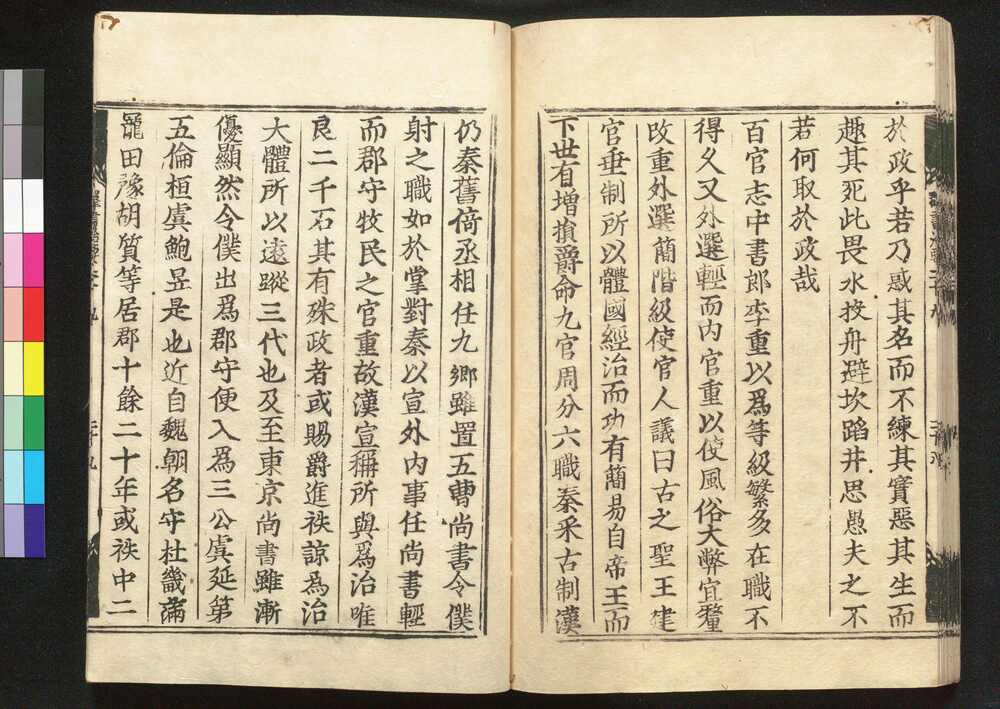 於政乎若乃惑其名而不練其實惡其生而
趣其死此畏水投舟避坎蹈井思愚夫之不
若何取於政哉
百官志中書郎李重以爲等級繁多在職不
得久又外選輕而内官重以使風俗大弊宜釐
改重外選簡階級使官人議曰古之聖王建
官垂制所以體國經治而功有簡易自帝王而
下世有增損爵命九官周分六職秦采古制漢
仍秦舊倚丞相任九鄉雖置五曹尚書令僕
射之職如於掌對奏以宣外内事任尚書輕
而郡守牧民之官重故漢宣稱所與爲治唯
良二千石其有殊政者或賜爵進袟諒為治
大體所以遠蹤三代也及至東京尚書雖漸
優顯然令僕出爲郡守便入爲三公虞延第
五倫桓虞鮑昱是也近自魏朝名守杜畿滿
寵田豫胡質等居郡十餘二十年或袟中二